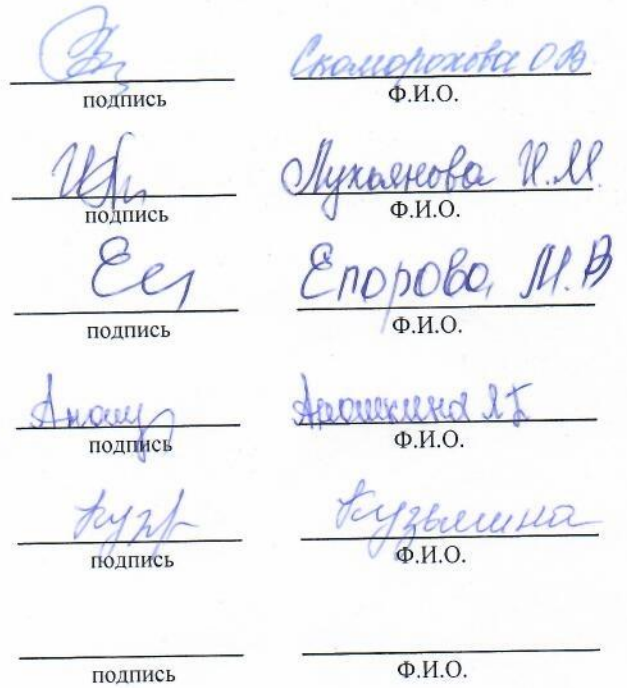 Скоморохова О В
подпись Ф.И.О.
Лукьянова И.М.
подпись Ф.И.О.
Епорова М.В
подпись Ф.И.О.
подпись Ф.И.О.
Кузьмина
подпись Ф.И.О.
подпись Ф.И.О.